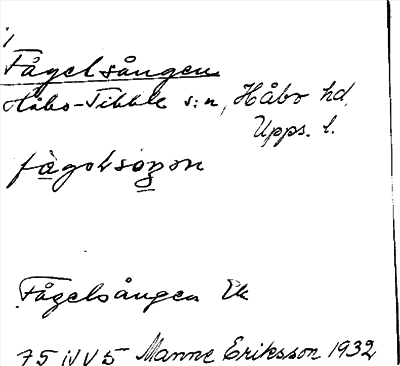 Fågelsången
Håbo-Tibble s:n, Håbo hd.
Upps. l.
Fågelsången Ek
75 NV5 Manne Eriksson 1932